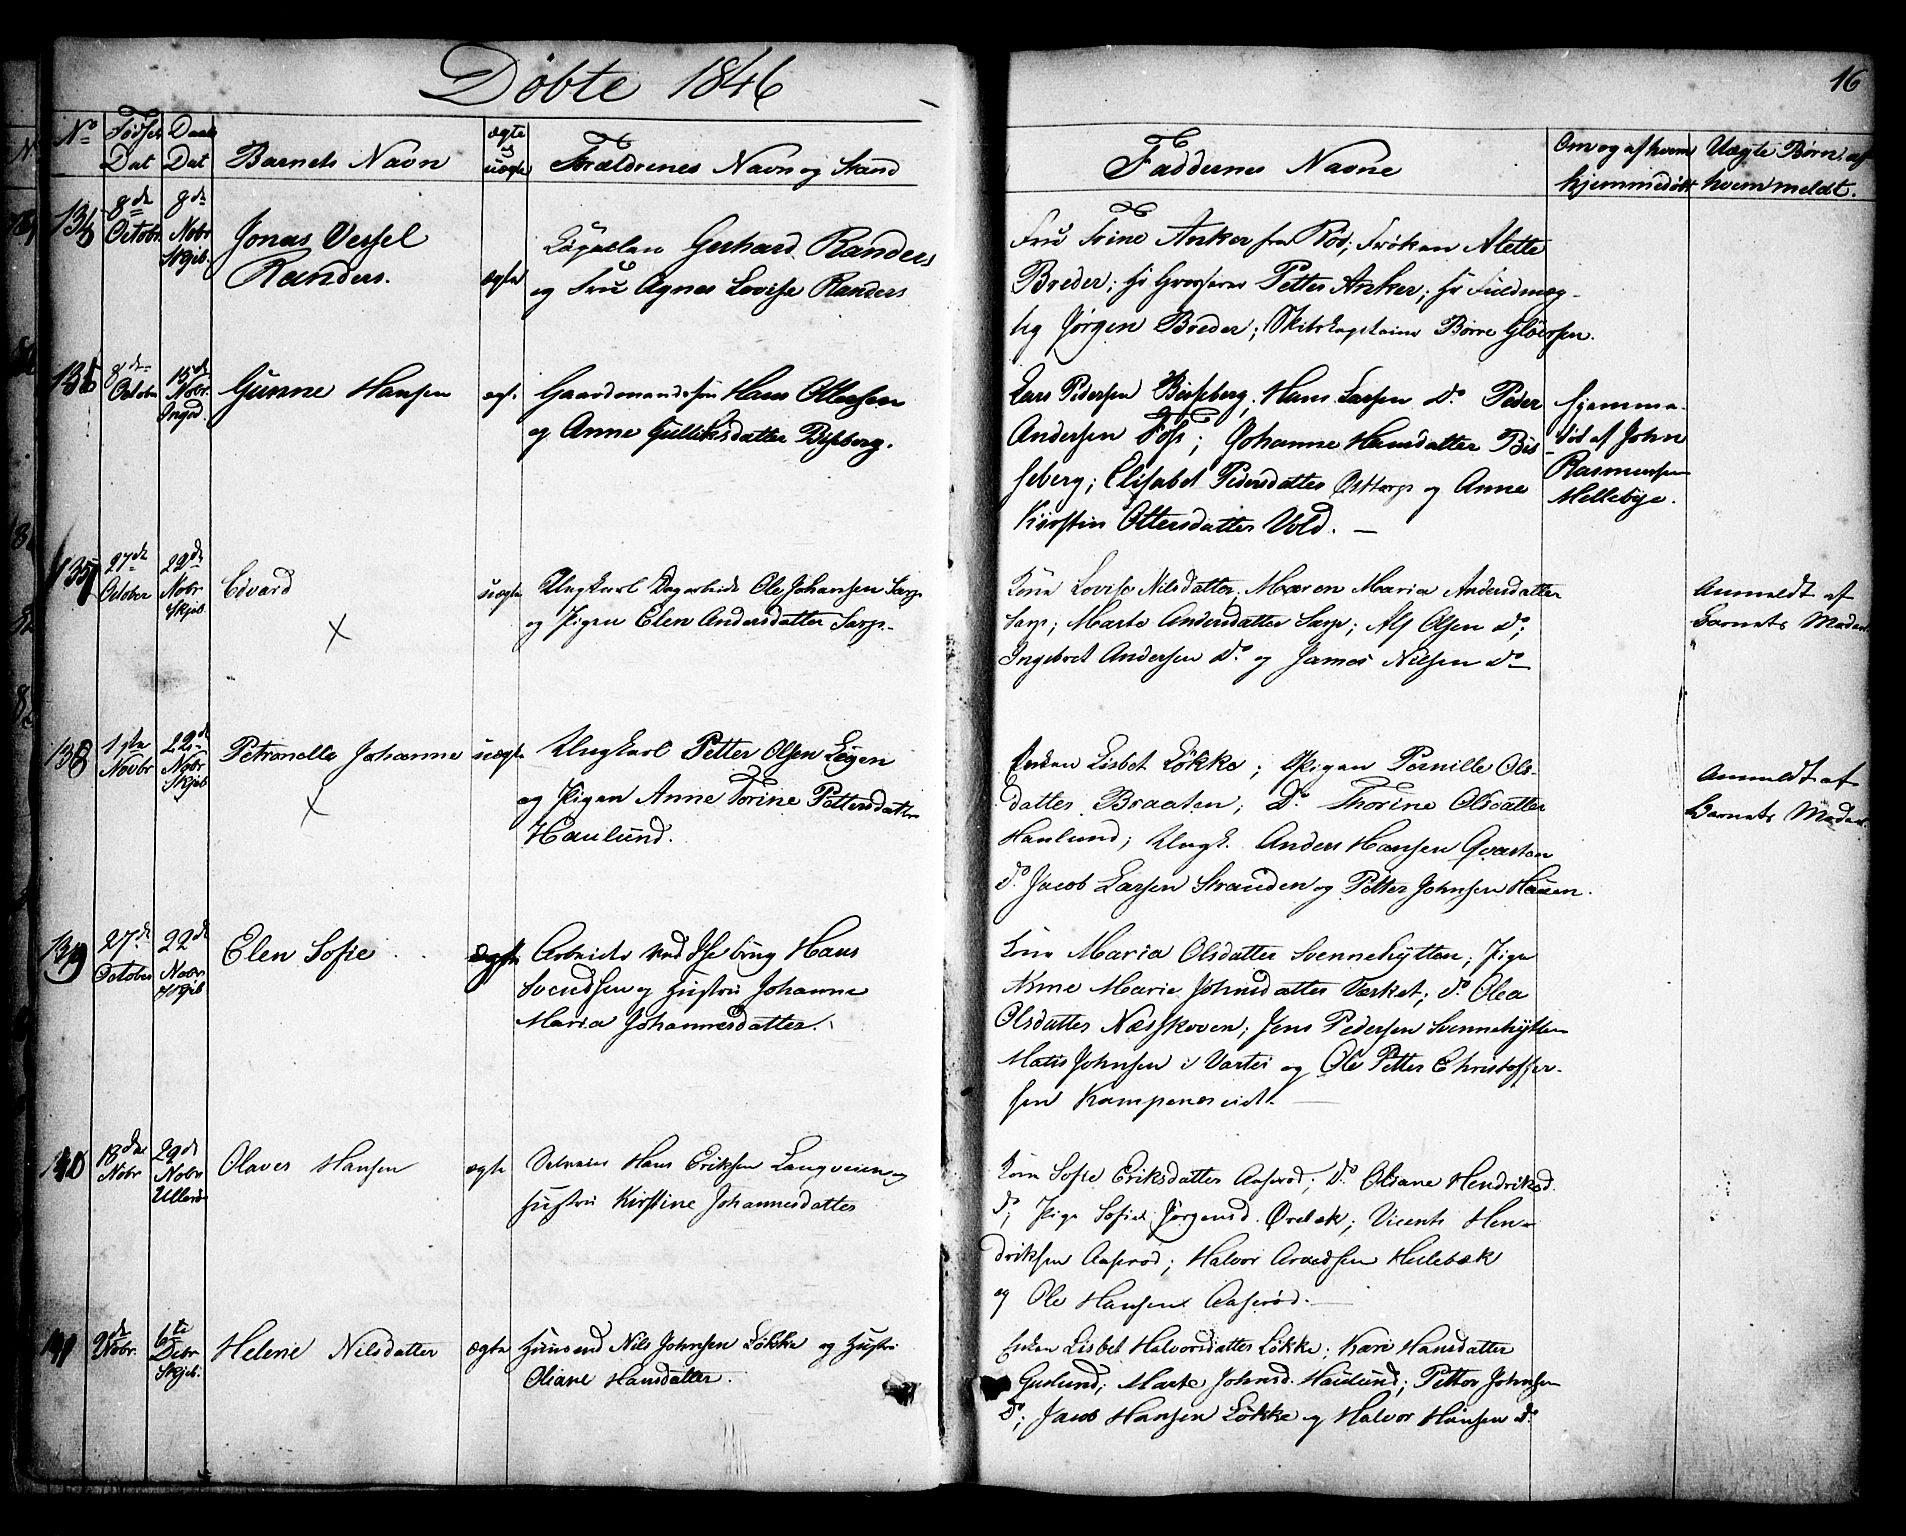 Döbte 1846
16
No
Födsels
Dat
Daabs
Dat
Barnets Navn
ægte
og
uægte
Forældrenes Navn og Stand
Faddernes Navne
Om og af hvem
hjemmedöbt
Uægte Börn af
hvem meldt.
8de
Octobr
8de
Novbr
Skjeb.
Jonas Vessel
Randers.
ægte
Gerhard Randers
og Fru Agnes Lovise Randers
Fru Trine Anker fra Röd; Fröken Alette
Breder; Hr Petter Anker; Hr Fuldmæg-
tig Jörgen Breder; Skibskaptain Börre
8de
Octobr
15de
Novbr
Gunne Hansen
ægt.
Gaardmandssön Hans Ottersen
og Anne Gulliksdatter Bisseberg.
Lars Pedersen Bisseberg, Hans Larsen Do Peder
Andersen Foss; Johanne Hansdatter Bis-
seberg; Elisabet Pedersdatter og Anne
Kirstin Ottersdatter Vold. —
Hjemme-
döbt af John
Rasmussen
Mellebye.
137
27de
October
22de
Novbr
Skjeb.
Edvard
uægte
Ungkarl Dagarbeider Ole Johansen Sarp
og Pigen Elen Andersdatter Sarp.
Kone Lovise Nilsdatter; Maren Maria Andersdatter
Sarp; Marte Andersdatter Sarp; Alf Olsen Do;
Ingebret Andersen Do og James Nilsen Do
Anmeldt af
Barnets Moder
138
1ste
Novbr
22de
Novbr
Skjeb
Petronelle Johanne
uægte
Ungkarl Petter Olsen Legen
og Pigen Anne Torine Pettersdatter
Haulund.
Enken Lisbet Lökke; Pigen Pernille Ols-
datter Braaten; Do Thorine Olsdatter
Haulund; Ungk. Anders Hansen
Do Jacob Larsen Stranden og Petter Johnsen Hauen.
Anmeldt af
Barnets Moder
139
27de
October
22de
Novbr
Skjeb
Elen Sofie
ægte
Arbeider ved Isebrug Hans
Svendsen og Hustru Johanne
Maria Johannesdatter.
Kone Maria Olsdatter Svennehytten; Pige
Anne Marie Johnsdatter Værket; Do Olea
Olsdatter Næsskoven; Jens Pedersen Svennehytten
Mats Johnsen i Varter og Ole Petter Christoffer-
sen Kampenes eidt. —
140
18de
Novbr
29de
Novbr
Ullerö
Olaves Hansen
ægte
Selveier Hans Eriksen Langveien og
Hustru Kirstine Johannesdatter
Kone Sofie Eriksdatter Aaseröd; Do Oliane Hendriksd.
Do; Pige Sofie Jörgensd. Örebæk; Vicents Hen-
driksen Aaseröd; Halvor Arvedsen Hellebæk
og Ole Hansen Aaseröd. —
141
2de
Novbr.
6te
Debr
Skjeb.
Helene Nilsdatter
ægte
Huusmd Nils Johnsen Lökke og Hustru
Oliane Hansdatter.
Enken Lisbet Halvorsdatter Lökke; Kari Hansdatter
Guslund; Marte Johnsd. Haulund; Petter Johnsen
Do; Jacob Hansen Lökke og Halvor Hansen Do